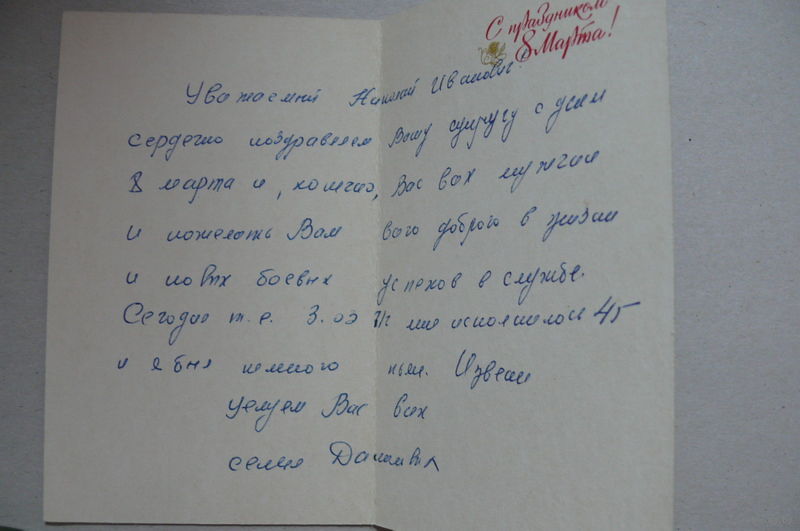 С праздником
8 Марта!
Уважаемый Николай Иванович!
сердечно поздравляем Вашу супругу с днем
8 марта и, конечно, Вас всех мужчин
и пожелать Вам всего доброго в жизни
и новых боевых успехов в службе.
Сегодня т.е. 3.03 мне исполнилось 45
и я был немного пьян. Извени
целуем Вас всех
семья